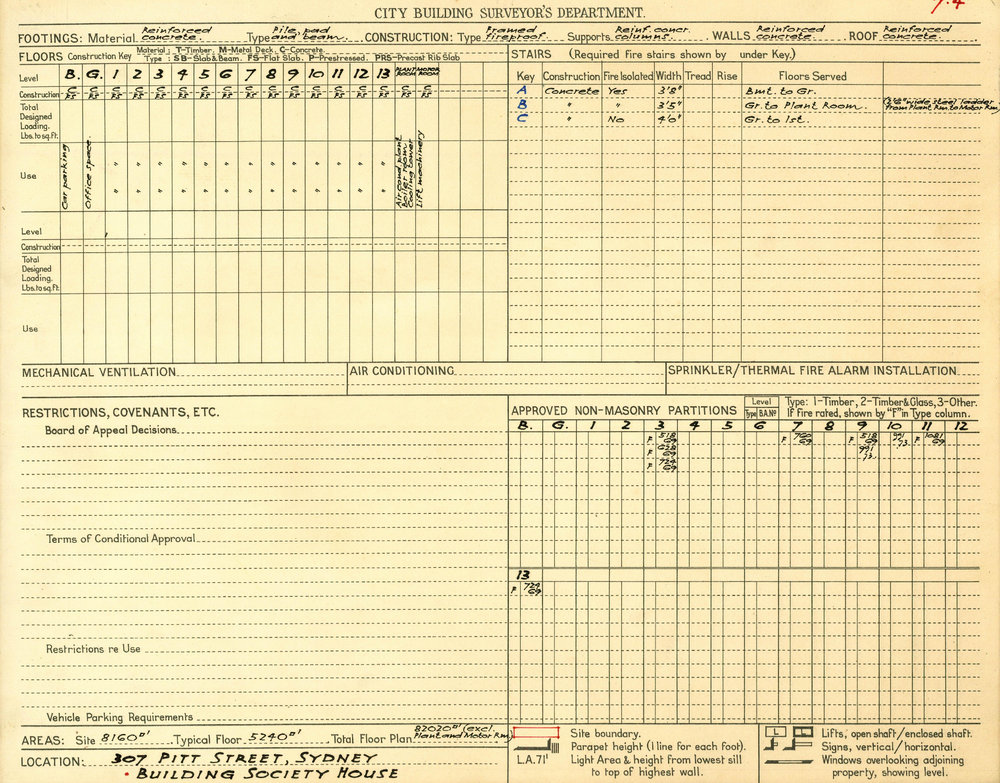 7.4
CITY BUILDING SURVEYOR'S DEPARTMENT.
FOOTINGS: Material Reinforced concrete. Type Pile, pad and beam. CONSTRUCTION: Type Framed Fireproof. Supports Reinf. concr. columns. WALLS Reinforced concrete. ROOF Reinforced concrete.
FLOORS Construction Key Material: T-Timber. M-Metal Deck. C-Concrete.
Type: SB-Slab & Beam. FS-Flat Slab. P-Prestressed. PRS-Precast Rib Slab
Level B. G. 1 2 3 4 5 6 7 8 9 10 11 12 13 PLANT ROOM MOTOR ROOM
Construction C FS C FS C FS C FS C FS C FS C FS C FS C FS C FS C FS C FS C FS C FS C FS C FS C FS
Total
Designed
Loading.
Lbs.to sq.ft.
Use Car parking Office space " " " " " " " " " " " " " Air cond. plant Boiler room. Cooling tower Lift machinery
" " " " " " " " " " " " "
Level
Construction
Total
Designed
Loading.
Lbs.to sq.ft.
Use
STAIRS (Required Fire stairs shown by under Key.)
Key Construction Fire Isolated Width Tread Rise Floors Served
A Concrete Yes 3'8" Bmt. to Gr.
B " " 3'5" Gr. to Plant Room. (2'6" wide steel ladder from Plant Rm to Motor Rm)
C " No 4'0" Gr. to 1st.
MECHANICAL VENTILATION.
AIR CONDITIONING.
SPRINKLER/THERMAL FIRE ALARM INSTALLATION.
RESTRICTIONS, COVENANTS, ETC.
Board of Appeal Decisions.
Terms of Conditional Approval
Restrictions re Use
Vehicle Parking Requirements
APPROVED NON-MASONRY PARTITIONS Level Type B.A.Nº Type: 1-Timber, 2-Timber & Glass, 3-Other.
If fire rated, shown by "F" in Type column.
B. G. 1 2 3 4 5 6 7 8 9 10 11 12
F 518 69 F 760 69 F 518 69 991 73 F 1081 69
F 628 69 991 73
F 724 69
13
F 724 69
AREAS: Site 8160□' Typical Floor 5240□' Total Floor Plan 82020□' (excl. Plant and Motor Rm)
LOCATION: 307 PITT STREET, SYDNEY
• BUILDING SOCIETY HOUSE
Site boundary.
Parapet height (1 line for each foot).
L.A.71' Light Area & height from lowest sill
to top of highest wall.
L Lifts, open shaft/enclosed shaft.
Signs, vertical/horizontal.
Windows overlooking adjoining
property, showing level.